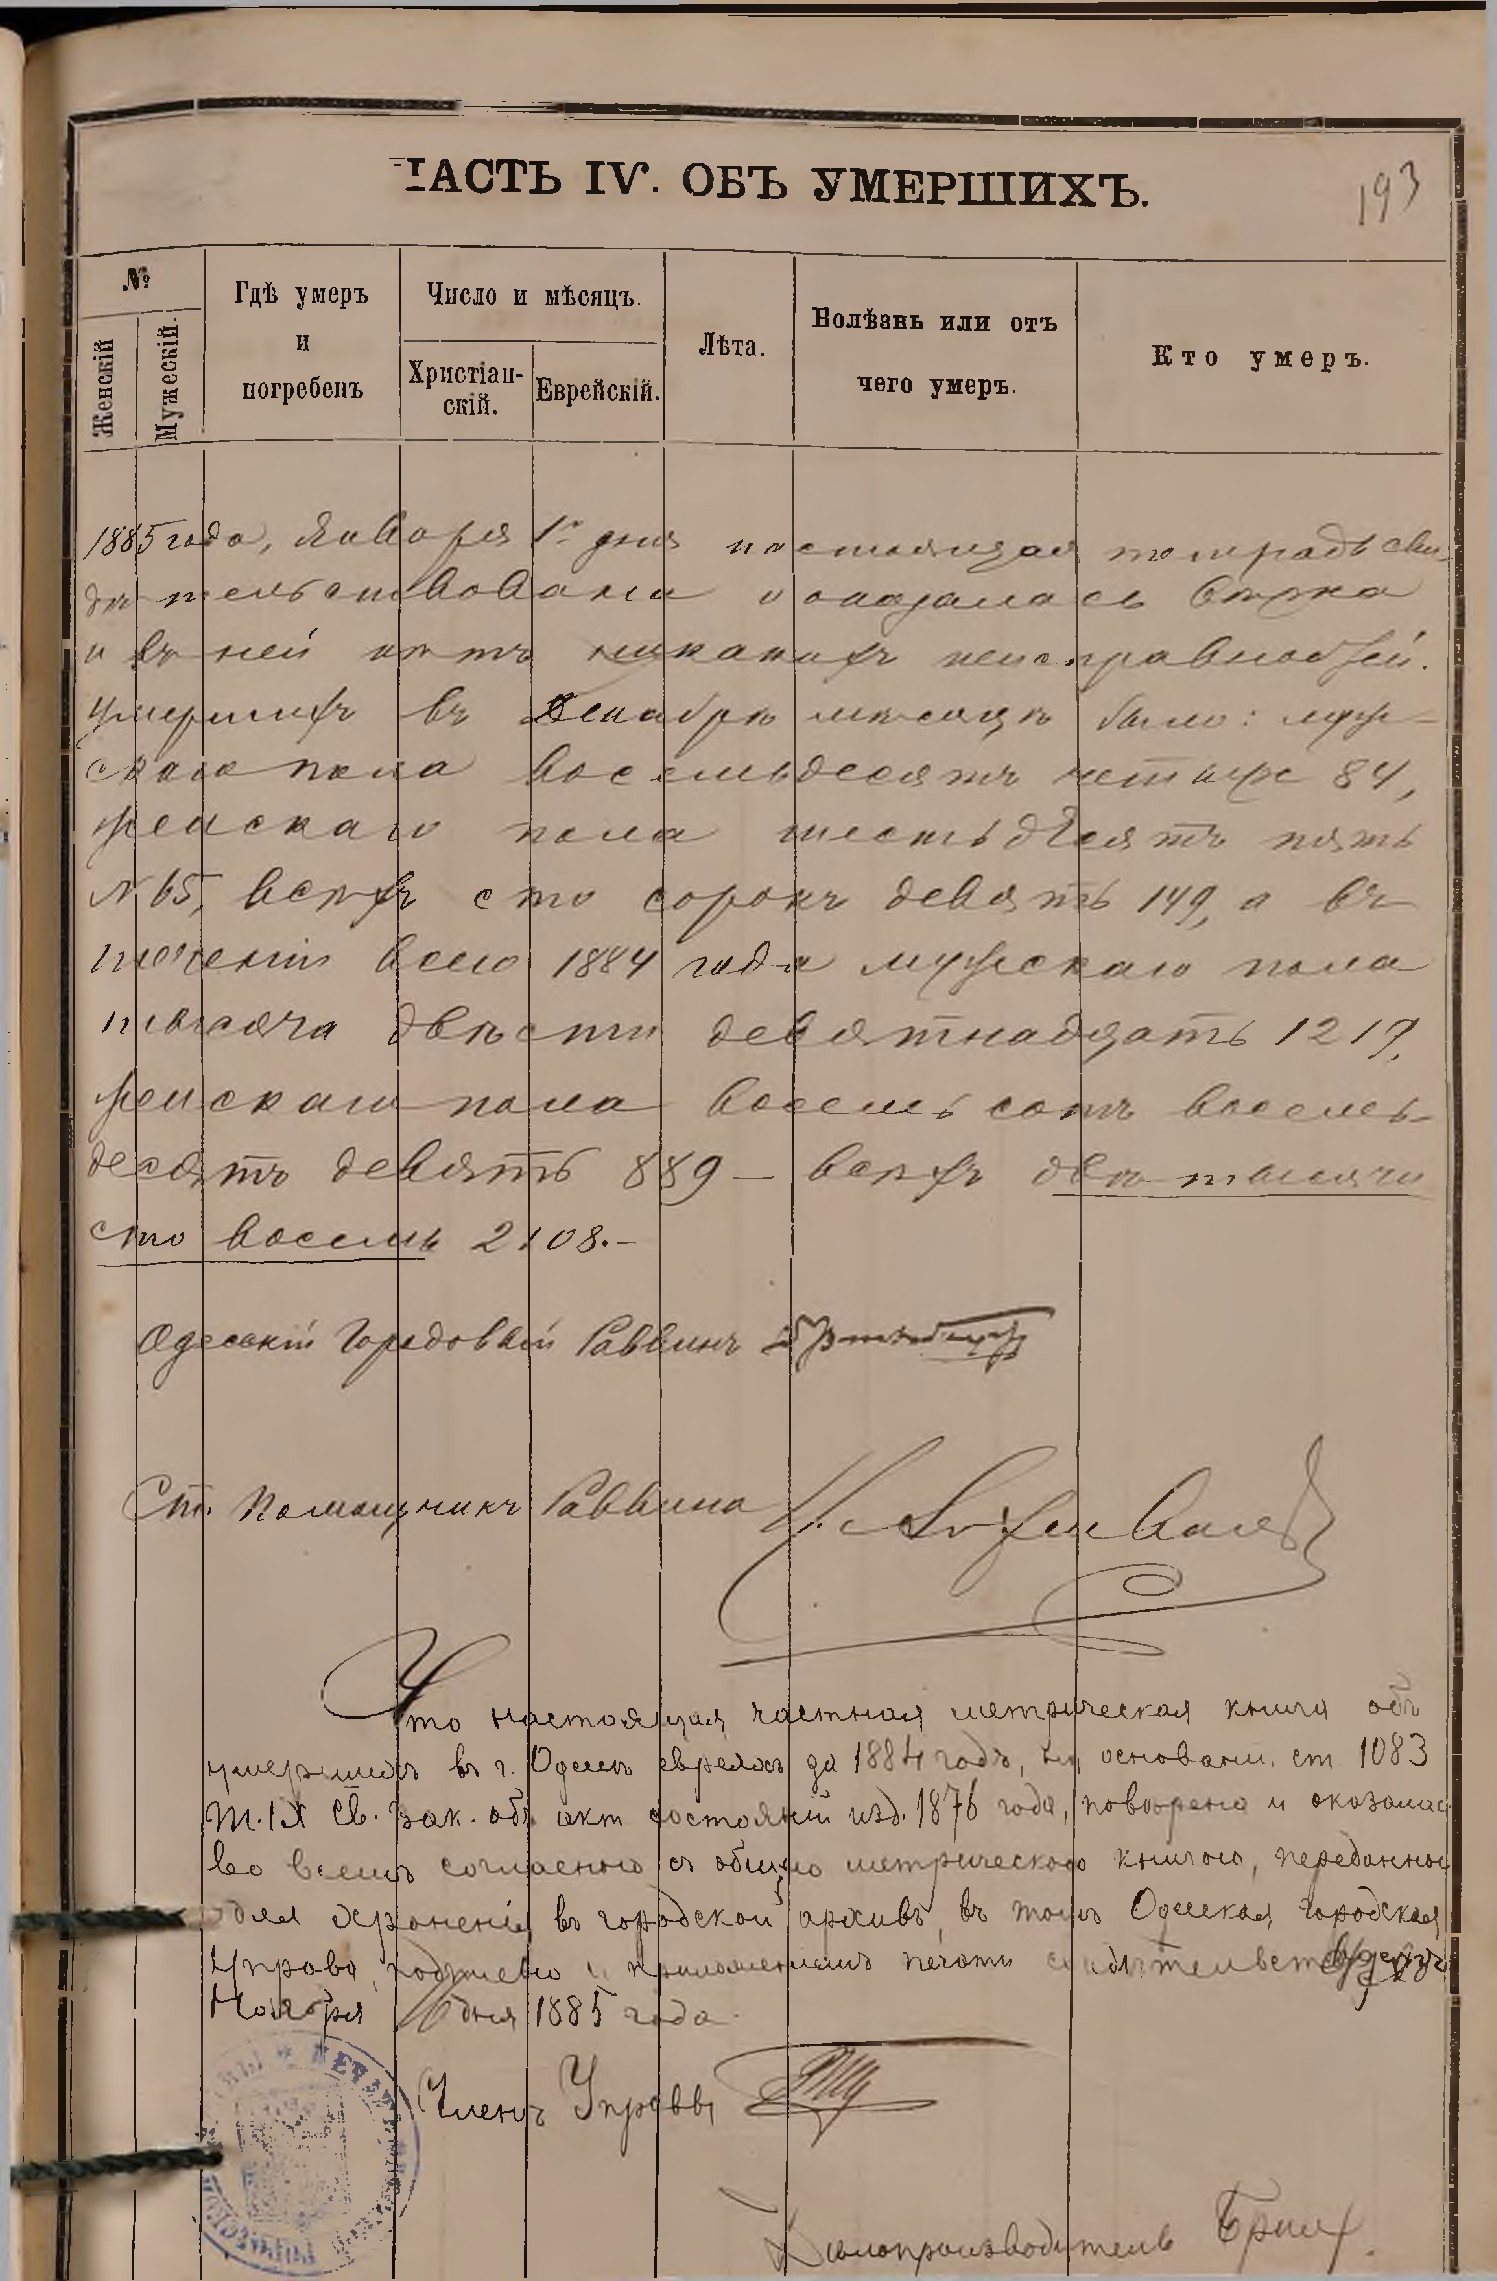 ЧАСТЬ IV. ОБЪ УМЕРШИХЪ.
193
№
Женскій
Мужескій.
Гдѣ умеръ
и
погребенъ
Число и мѣсяцъ.
Христіан-
скій.
Еврейскій.
Лѣта.
Болѣзнь или отъ
чего умеръ.
Кто умеръ.
1885 года, Января 1го дня настоящая тетрадь сви-
дѣтельствована и оказалась вѣрна
и въ ней нѣтъ никакихъ неисправностей.
Умершихъ въ Декабрѣ мѣсяцѣ было: муж-
скаго пола восемьдесятъ четыре 84,
женскаго пола шестьдесятъ пять
№ 65, всѣхъ сто сорокъ девять 149, а въ
теченіи всего 1884 года мужскаго пола
тысяча двѣсти девятнадцать 1219,
женскаго пола восемьсотъ восемь-
десятъ девять 889 — всѣхъ двѣ тысячи
сто восемь 2108.—
Одесскій Городовый Раввинъ
Ст. Помощникъ Раввина
Что настоящая частная метрическая книга объ
умершихъ въ г. Одессѣ евреяхъ за 1884 годъ, на основаніи. ст 1083
т. IX Св. Зак. объ акт состояній изд. 1876 года, повѣрена и оказалась
во всемъ согласною съ общею метрическою книгою, переданною
для храненія въ городской архивъ, въ томъ Одесская Городская
Управа, подписью и приложеніемъ печати свидѣтельствуетъ
Ноября дня 1885 года.
Членъ Управы
Дѣлопроизводитель